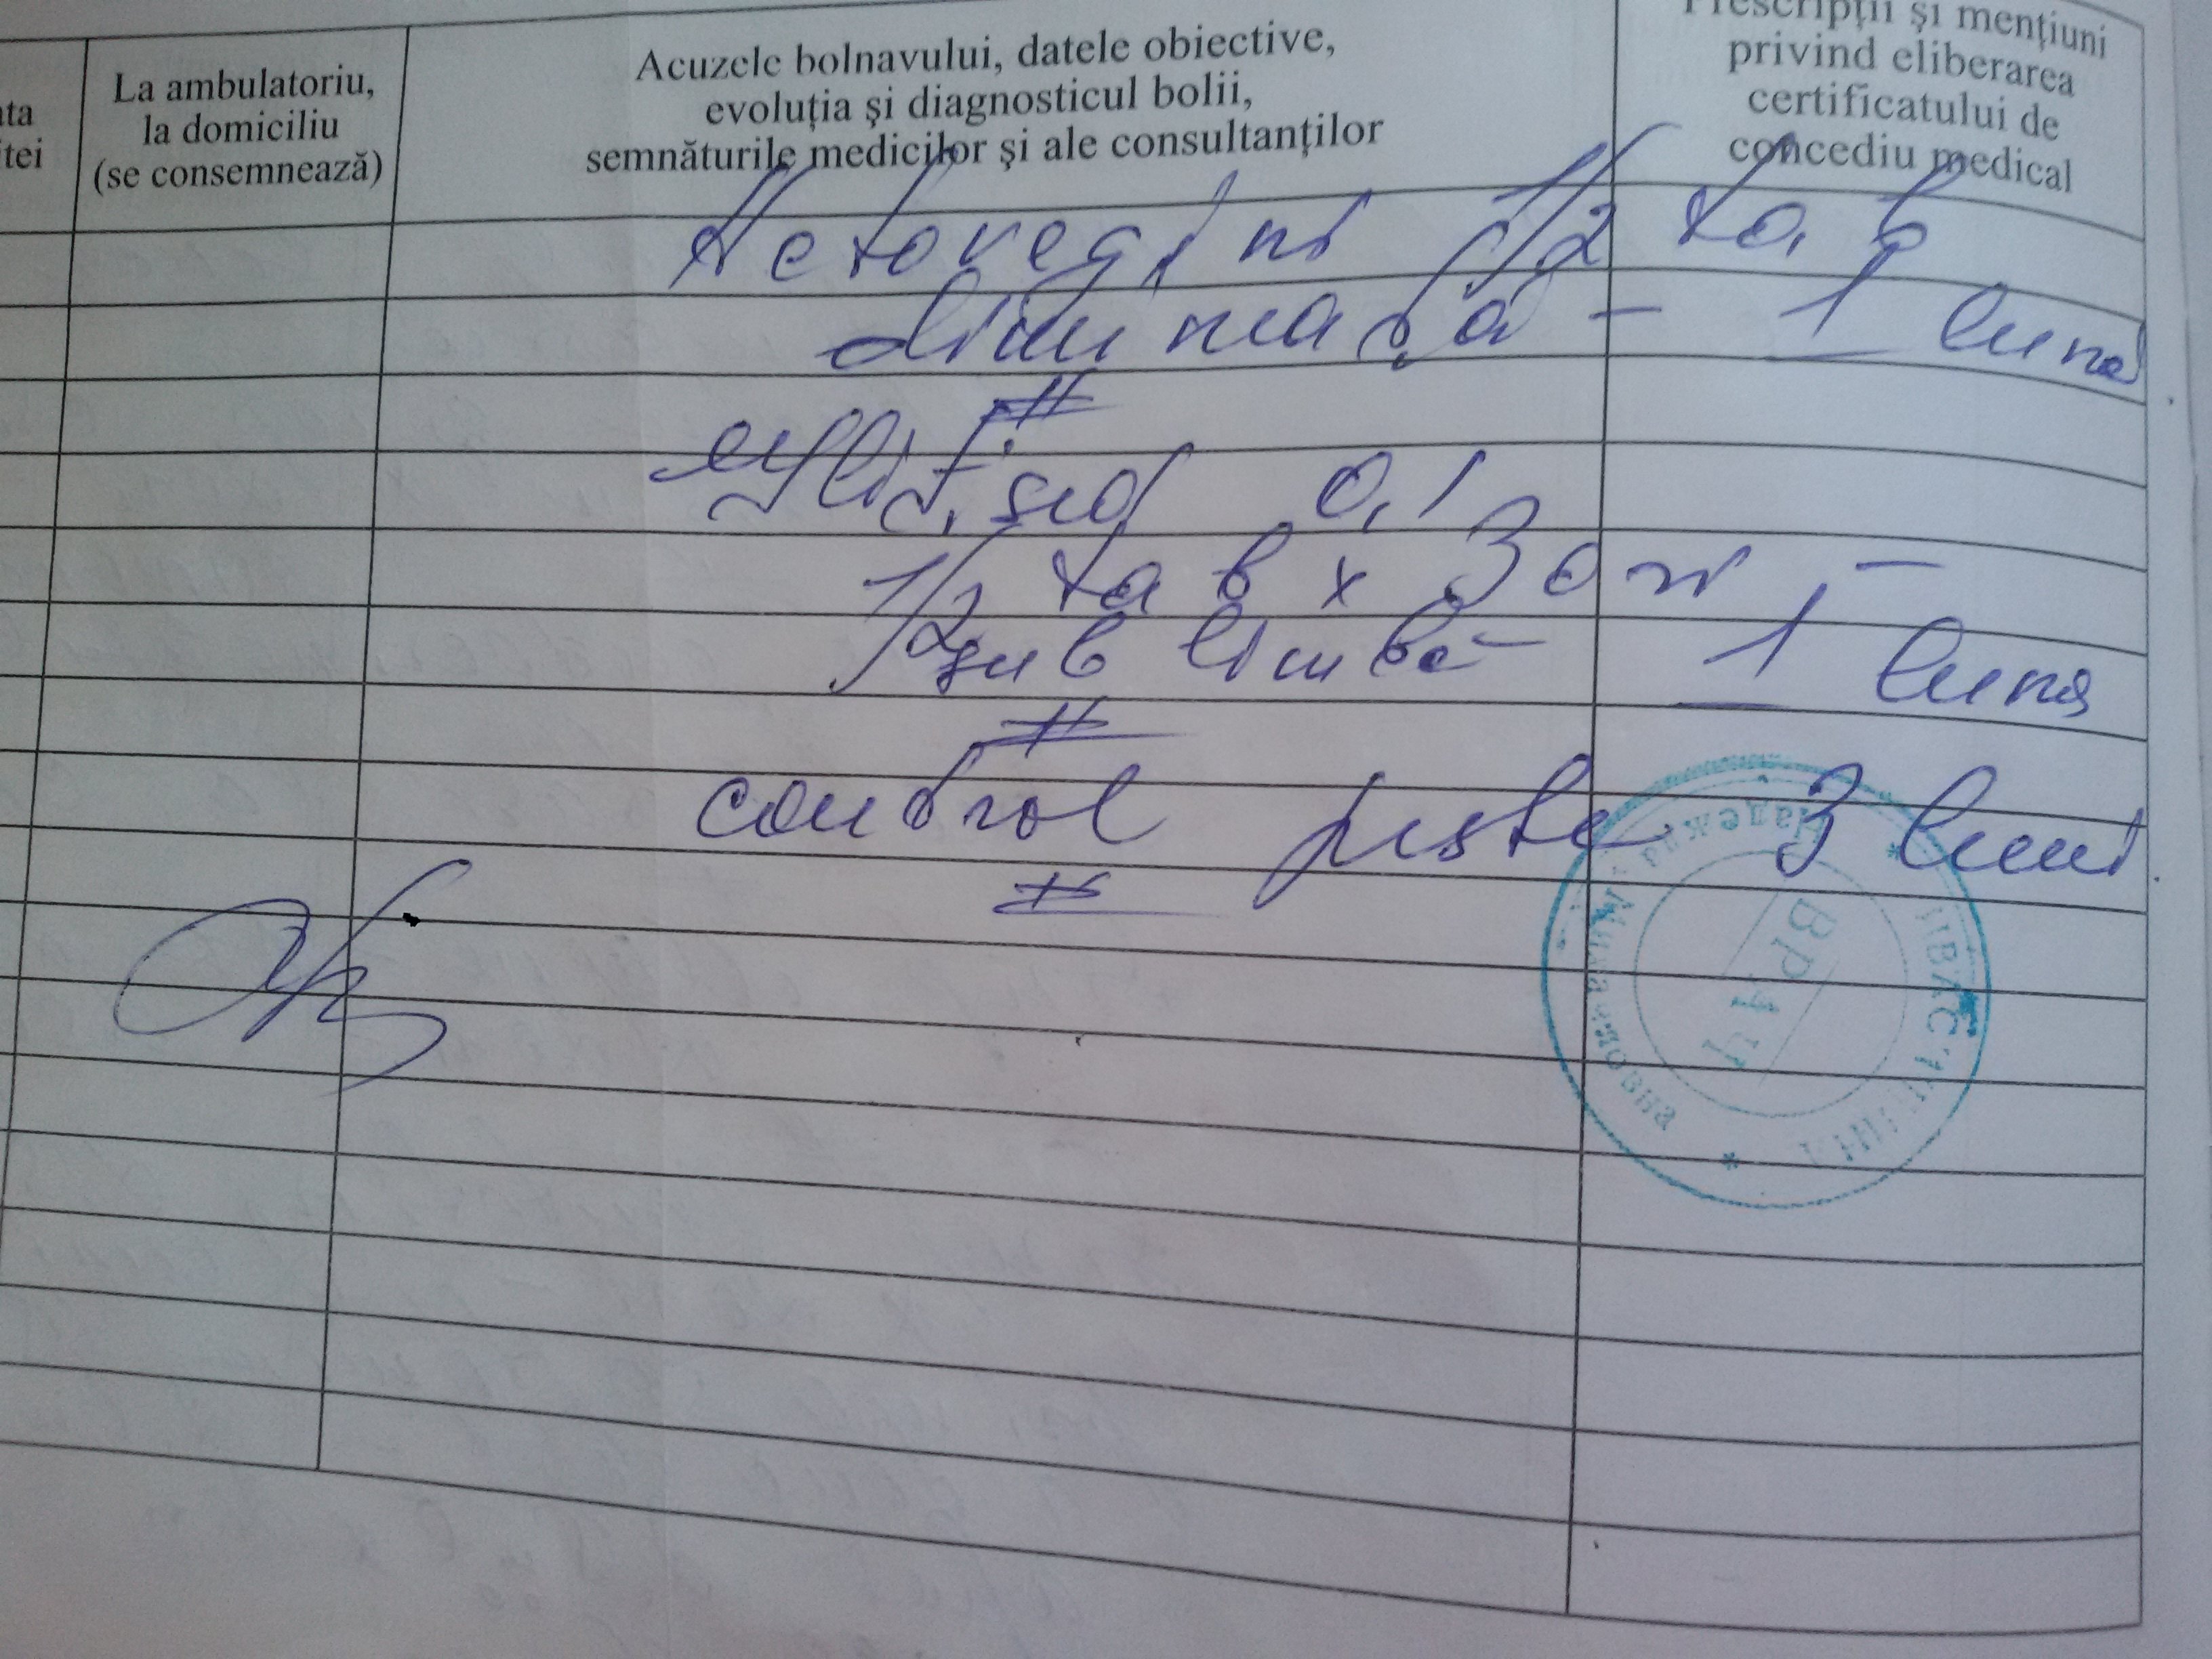 ata
itei
La ambulatoriu,
la domiciliu
(se consemnează)
Acuzele bolnavului, datele obiective,
evoluţia şi diagnosticul bolii,
semnăturile medicilor şi ale consultanţilor
Prescripţii şi menţiuni
privind eliberarea
certificatului de
concediu medical
Actovegini 1/2 tab
dimineaţa - 1 lună
0,1
1/2 tab x 3 ori -
sub limbă - 1 lună
control peste 3 luni
Надежда
Врач